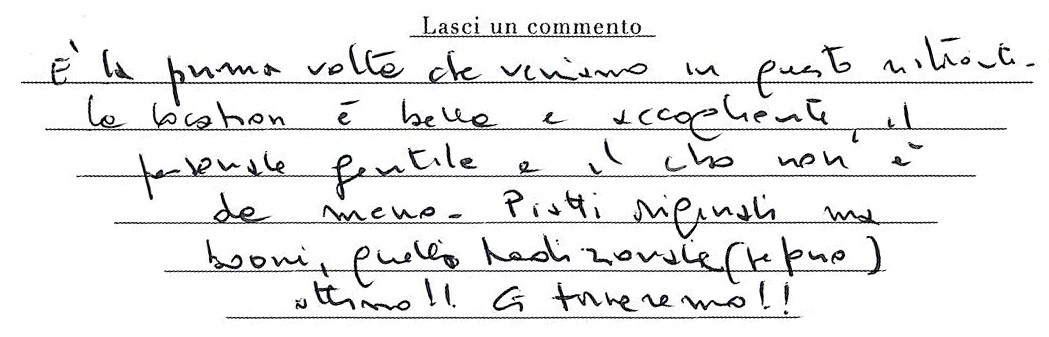 Lasci un commento
È la prima volta che veniamo in questo ristorante.
La location è bella e accogliente, il
personale gentile e il cibo non è
da meno. Piatti originali ma
buoni, quello tradizionale
ottimo!! Ci torneremo!!